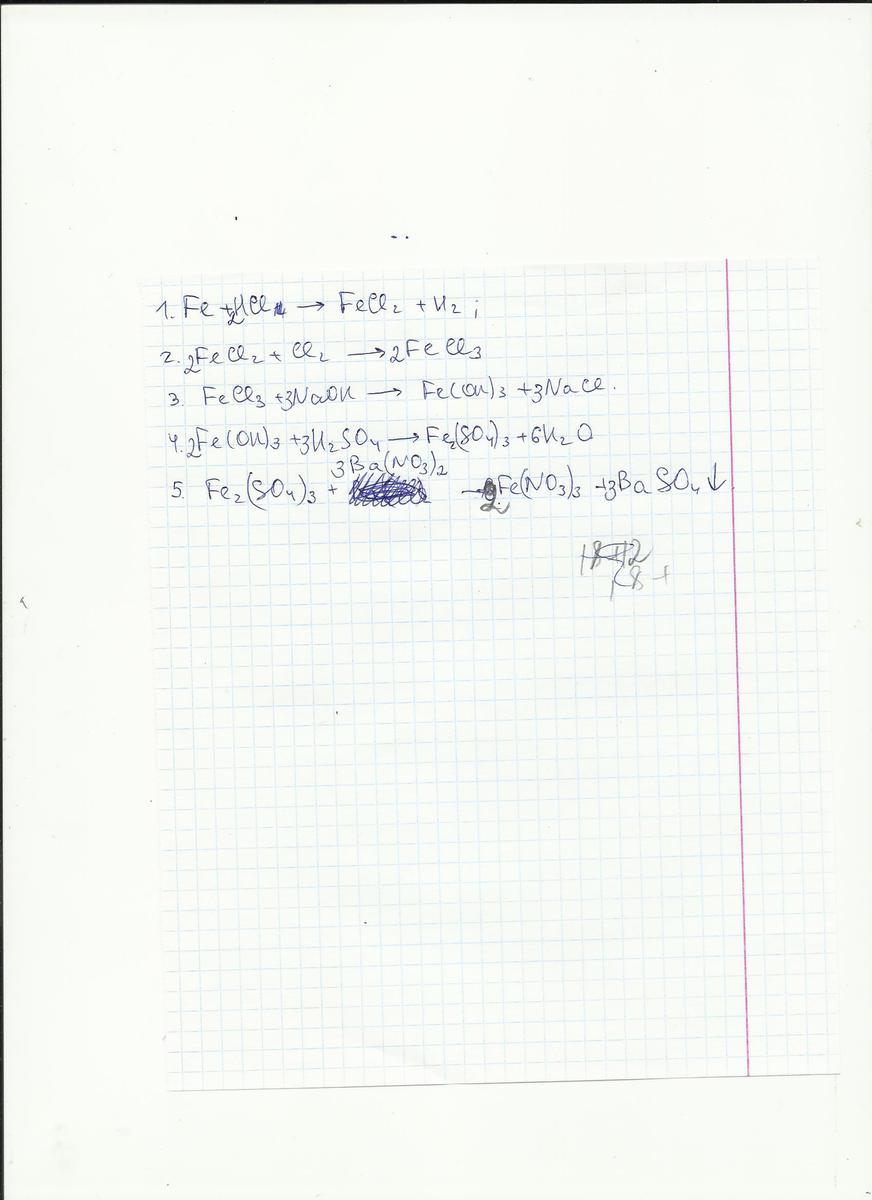 1. Fe + 2HCl → FeCl₂ + H₂ ;
2. 2FeCl₂ + Cl₂ → 2FeCl₃
3. FeCl₃ + 3NaOH → Fe(OH)₃ + 3NaCl.
4. 2Fe(OH)₃ + 3H₂SO₄ → Fe₂(SO₄)₃ + 6H₂O
5. Fe₂(SO₄)₃ + 3Ba(NO₃)₂ → 2Fe(NO₃)₃ + 3BaSO₄↓